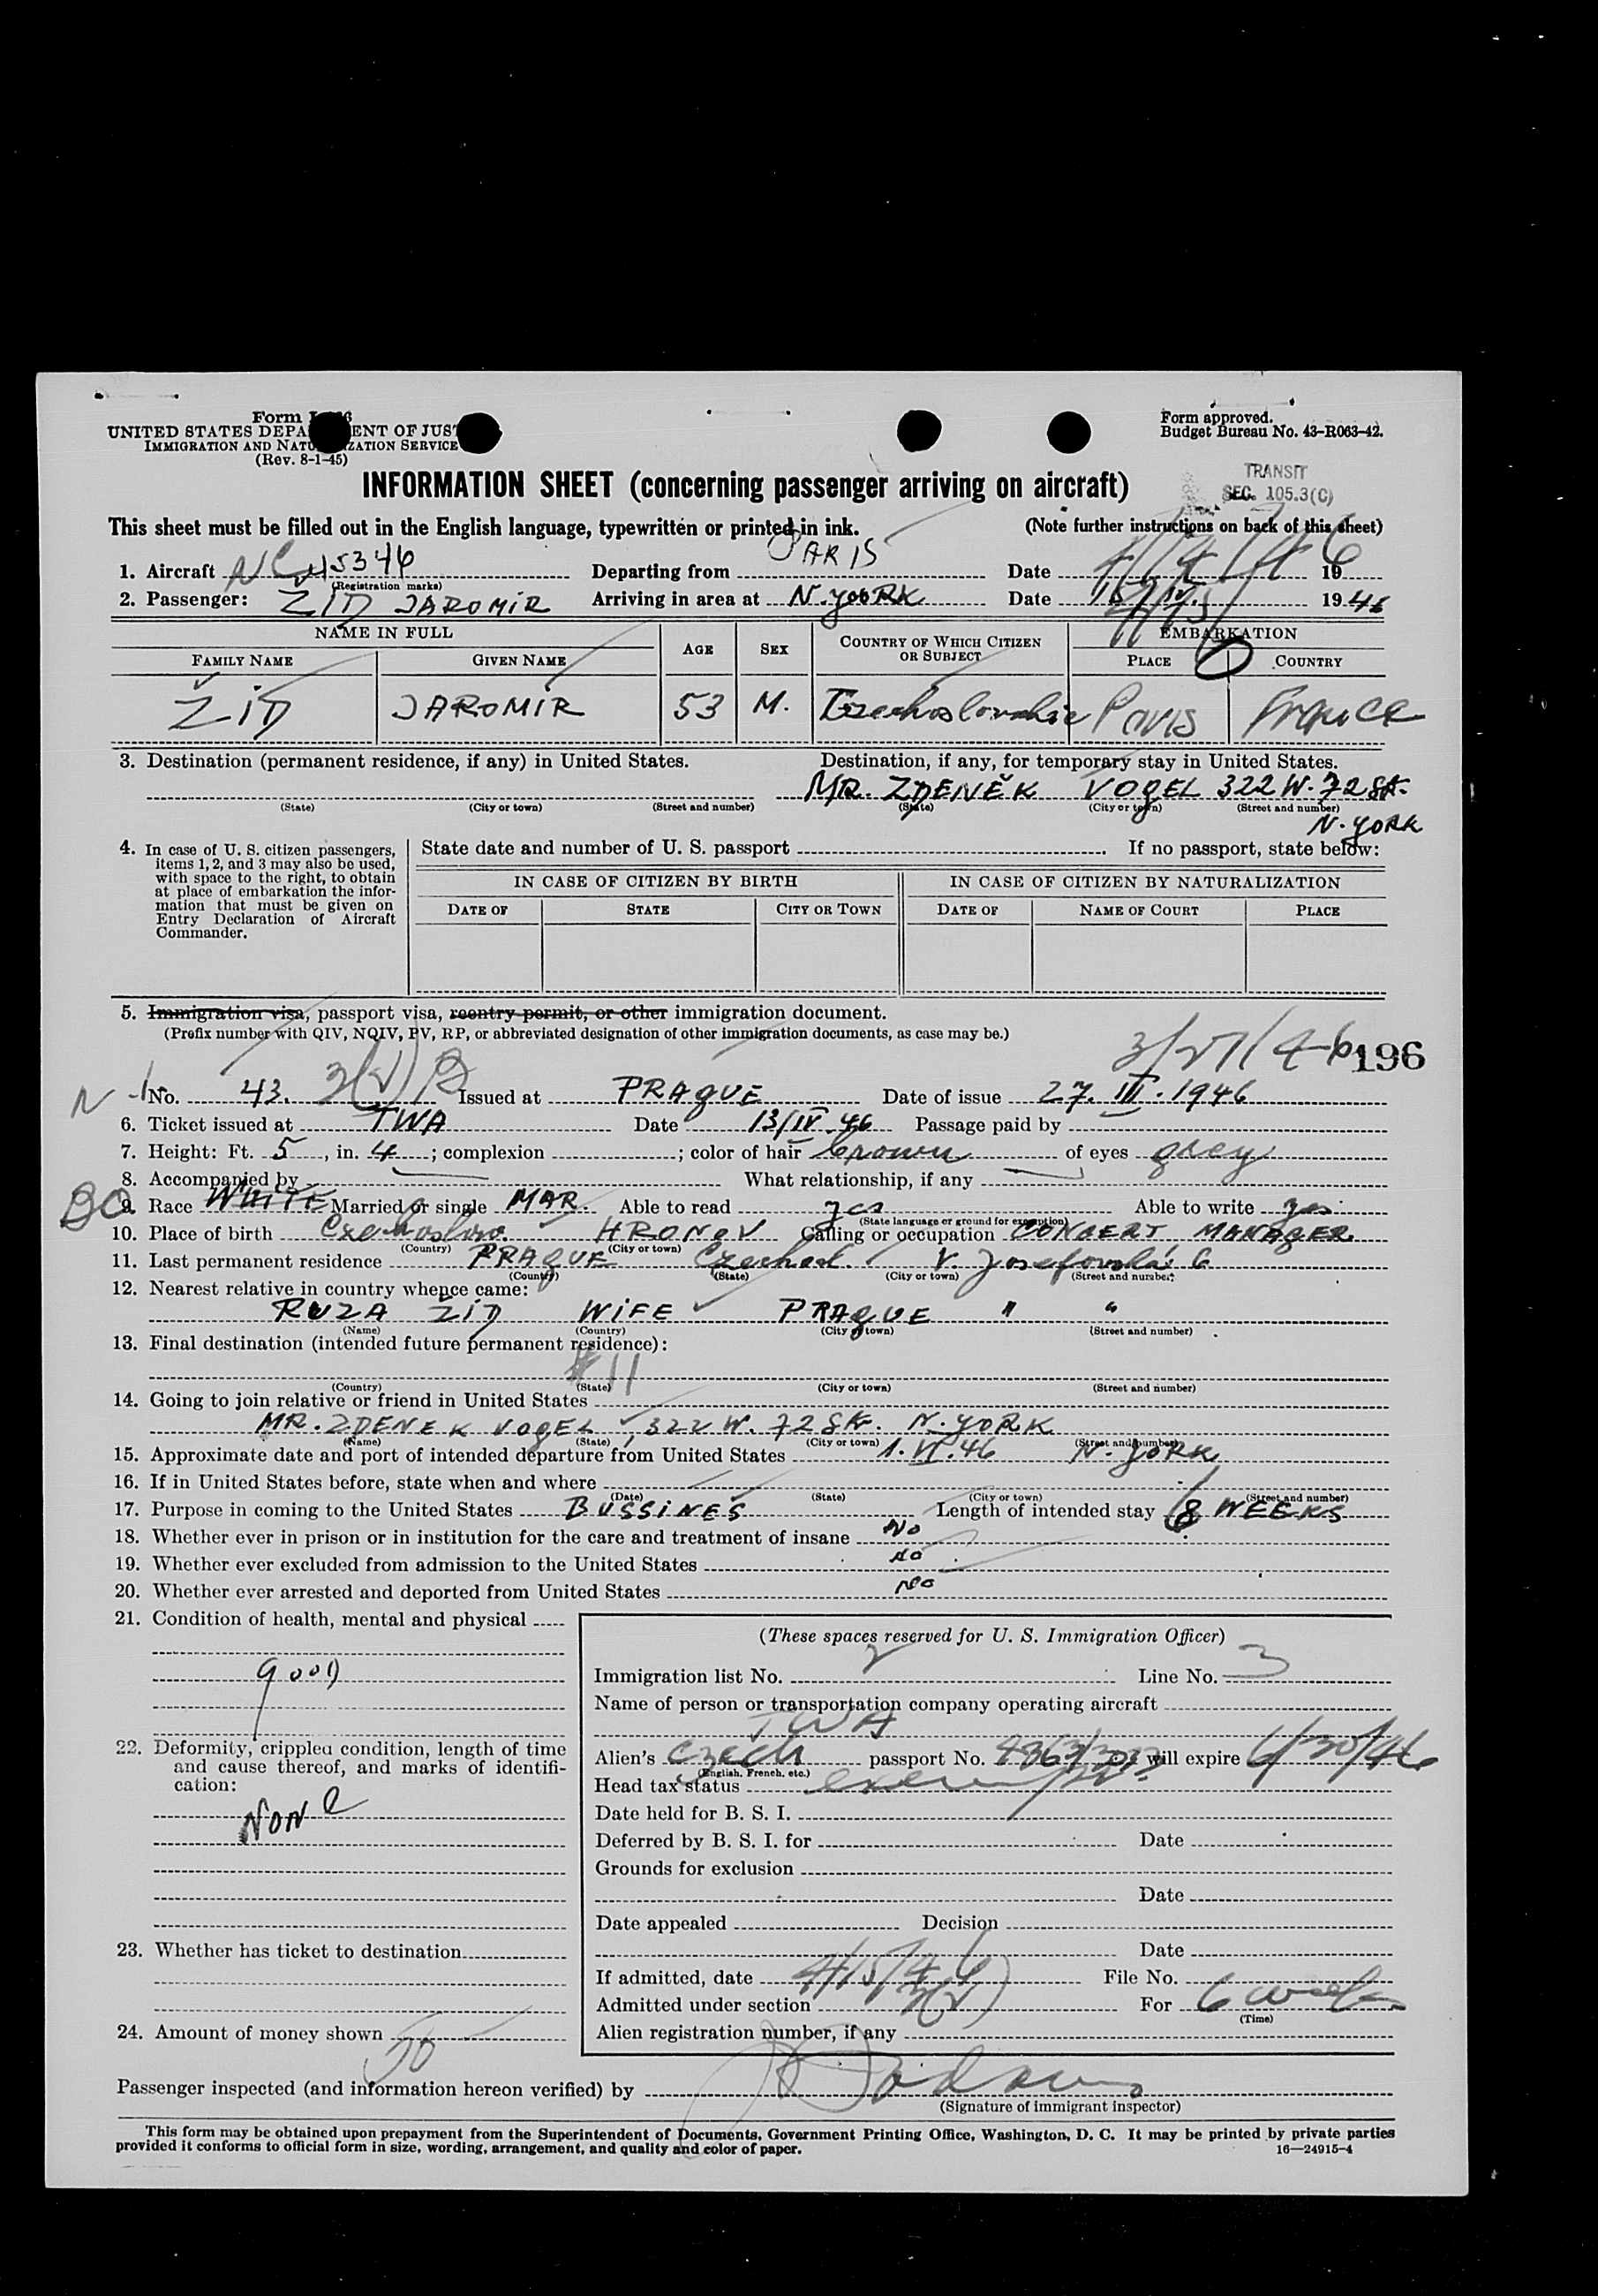 Form
UNITED STATES DEPA ENT OF JUS
IMMIGRATION AND NATU ZATION SERVICE
(Rev. 8-1-45)
Form approved.
Budget Bureau No. 43-R063-42.
INFORMATION SHEET (concerning passenger arriving on aircraft)
TRANSIT
SEC. 105.3(C)
This sheet must be filled out in the English language, typewritten or printed in ink.
(Note further instructions on back of this sheet)
1. Aircraft NC 45346 Departing from PARIS Date 4/14/46 19
(Registration marks)
2. Passenger: ŽID JAROMIR Arriving in area at N. YORK Date 1946
NAME IN FULL AGE SEX COUNTRY OF WHICH CITIZEN OR SUBJECT EMBARKATION
FAMILY NAME GIVEN NAME PLACE COUNTRY
ŽID JAROMIR 53 M. Czechoslovakia Paris France
3. Destination (permanent residence, if any) in United States. Destination, if any, for temporary stay in United States.
MR. ZDENĚK VOGEL 322 W. 72 St.
(State) (City or town) (Street and number) (State) (City or town) (Street and number)
N. YORK
4. In case of U. S. citizen passengers, items 1, 2, and 3 may also be used, with space to the right, to obtain at place of embarkation the information that must be given on Entry Declaration of Aircraft Commander.
State date and number of U. S. passport If no passport, state below:
IN CASE OF CITIZEN BY BIRTH IN CASE OF CITIZEN BY NATURALIZATION
DATE OF STATE CITY OR TOWN DATE OF NAME OF COURT PLACE
5. Immigration visa, passport visa, reentry permit, or other immigration document.
(Prefix number with QIV, NQIV, PV, RP, or abbreviated designation of other immigration documents, as case may be.)
3/27/46 196
No. 43. 3(2) Issued at PRAGUE Date of issue 27. III. 1946
6. Ticket issued at TWA Date 13/IV. 46 Passage paid by
7. Height: Ft. 5, in. 4; complexion ; color of hair brown of eyes grey
8. Accompanied by What relationship, if any
BO
9. Race WHITE Married or single MAR. Able to read yes Able to write yes
(State language or ground for exemption)
10. Place of birth Czechoslov. HRONOV Calling or occupation CONCERT MANAGER
(Country) (City or town)
11. Last permanent residence PRAGUE Czechosl. V. Josefovská 6
(Country) (State) (City or town) (Street and number)
12. Nearest relative in country whence came:
RUZA ŽID WIFE PRAGUE " "
(Name) (Country) (City or town) (Street and number)
13. Final destination (intended future permanent residence):
(Country) (State) (City or town) (Street and number)
14. Going to join relative or friend in United States
MR. ZDENEK VOGEL, 322 W. 72 St. N. YORK
(Name) (State) (City or town) (Street and number)
15. Approximate date and port of intended departure from United States 1. VI. 46 N. YORK
16. If in United States before, state when and where
(Date) (State) (City or town) (Street and number)
17. Purpose in coming to the United States BUSSINES Length of intended stay 6 WEEKS
18. Whether ever in prison or in institution for the care and treatment of insane No
19. Whether ever excluded from admission to the United States no
20. Whether ever arrested and deported from United States no
21. Condition of health, mental and physical
good
22. Deformity, crippled condition, length of time and cause thereof, and marks of identification:
None
23. Whether has ticket to destination
24. Amount of money shown 50
(These spaces reserved for U. S. Immigration Officer)
Immigration list No. 2 Line No. 3
Name of person or transportation company operating aircraft
TWA
Alien's Czech passport No. will expire 6/30/46
(English, French, etc.)
Head tax status exempt
Date held for B. S. I.
Deferred by B. S. I. for Date
Grounds for exclusion
Date
Date appealed Decision
Date
If admitted, date 4/15/46 File No.
Admitted under section 3(2) For 6 weeks
(Time)
Alien registration number, if any
Passenger inspected (and information hereon verified) by
(Signature of immigrant inspector)
This form may be obtained upon prepayment from the Superintendent of Documents, Government Printing Office, Washington, D. C. It may be printed by private parties
provided it conforms to official form in size, wording, arrangement, and quality and color of paper. 16—24915-4